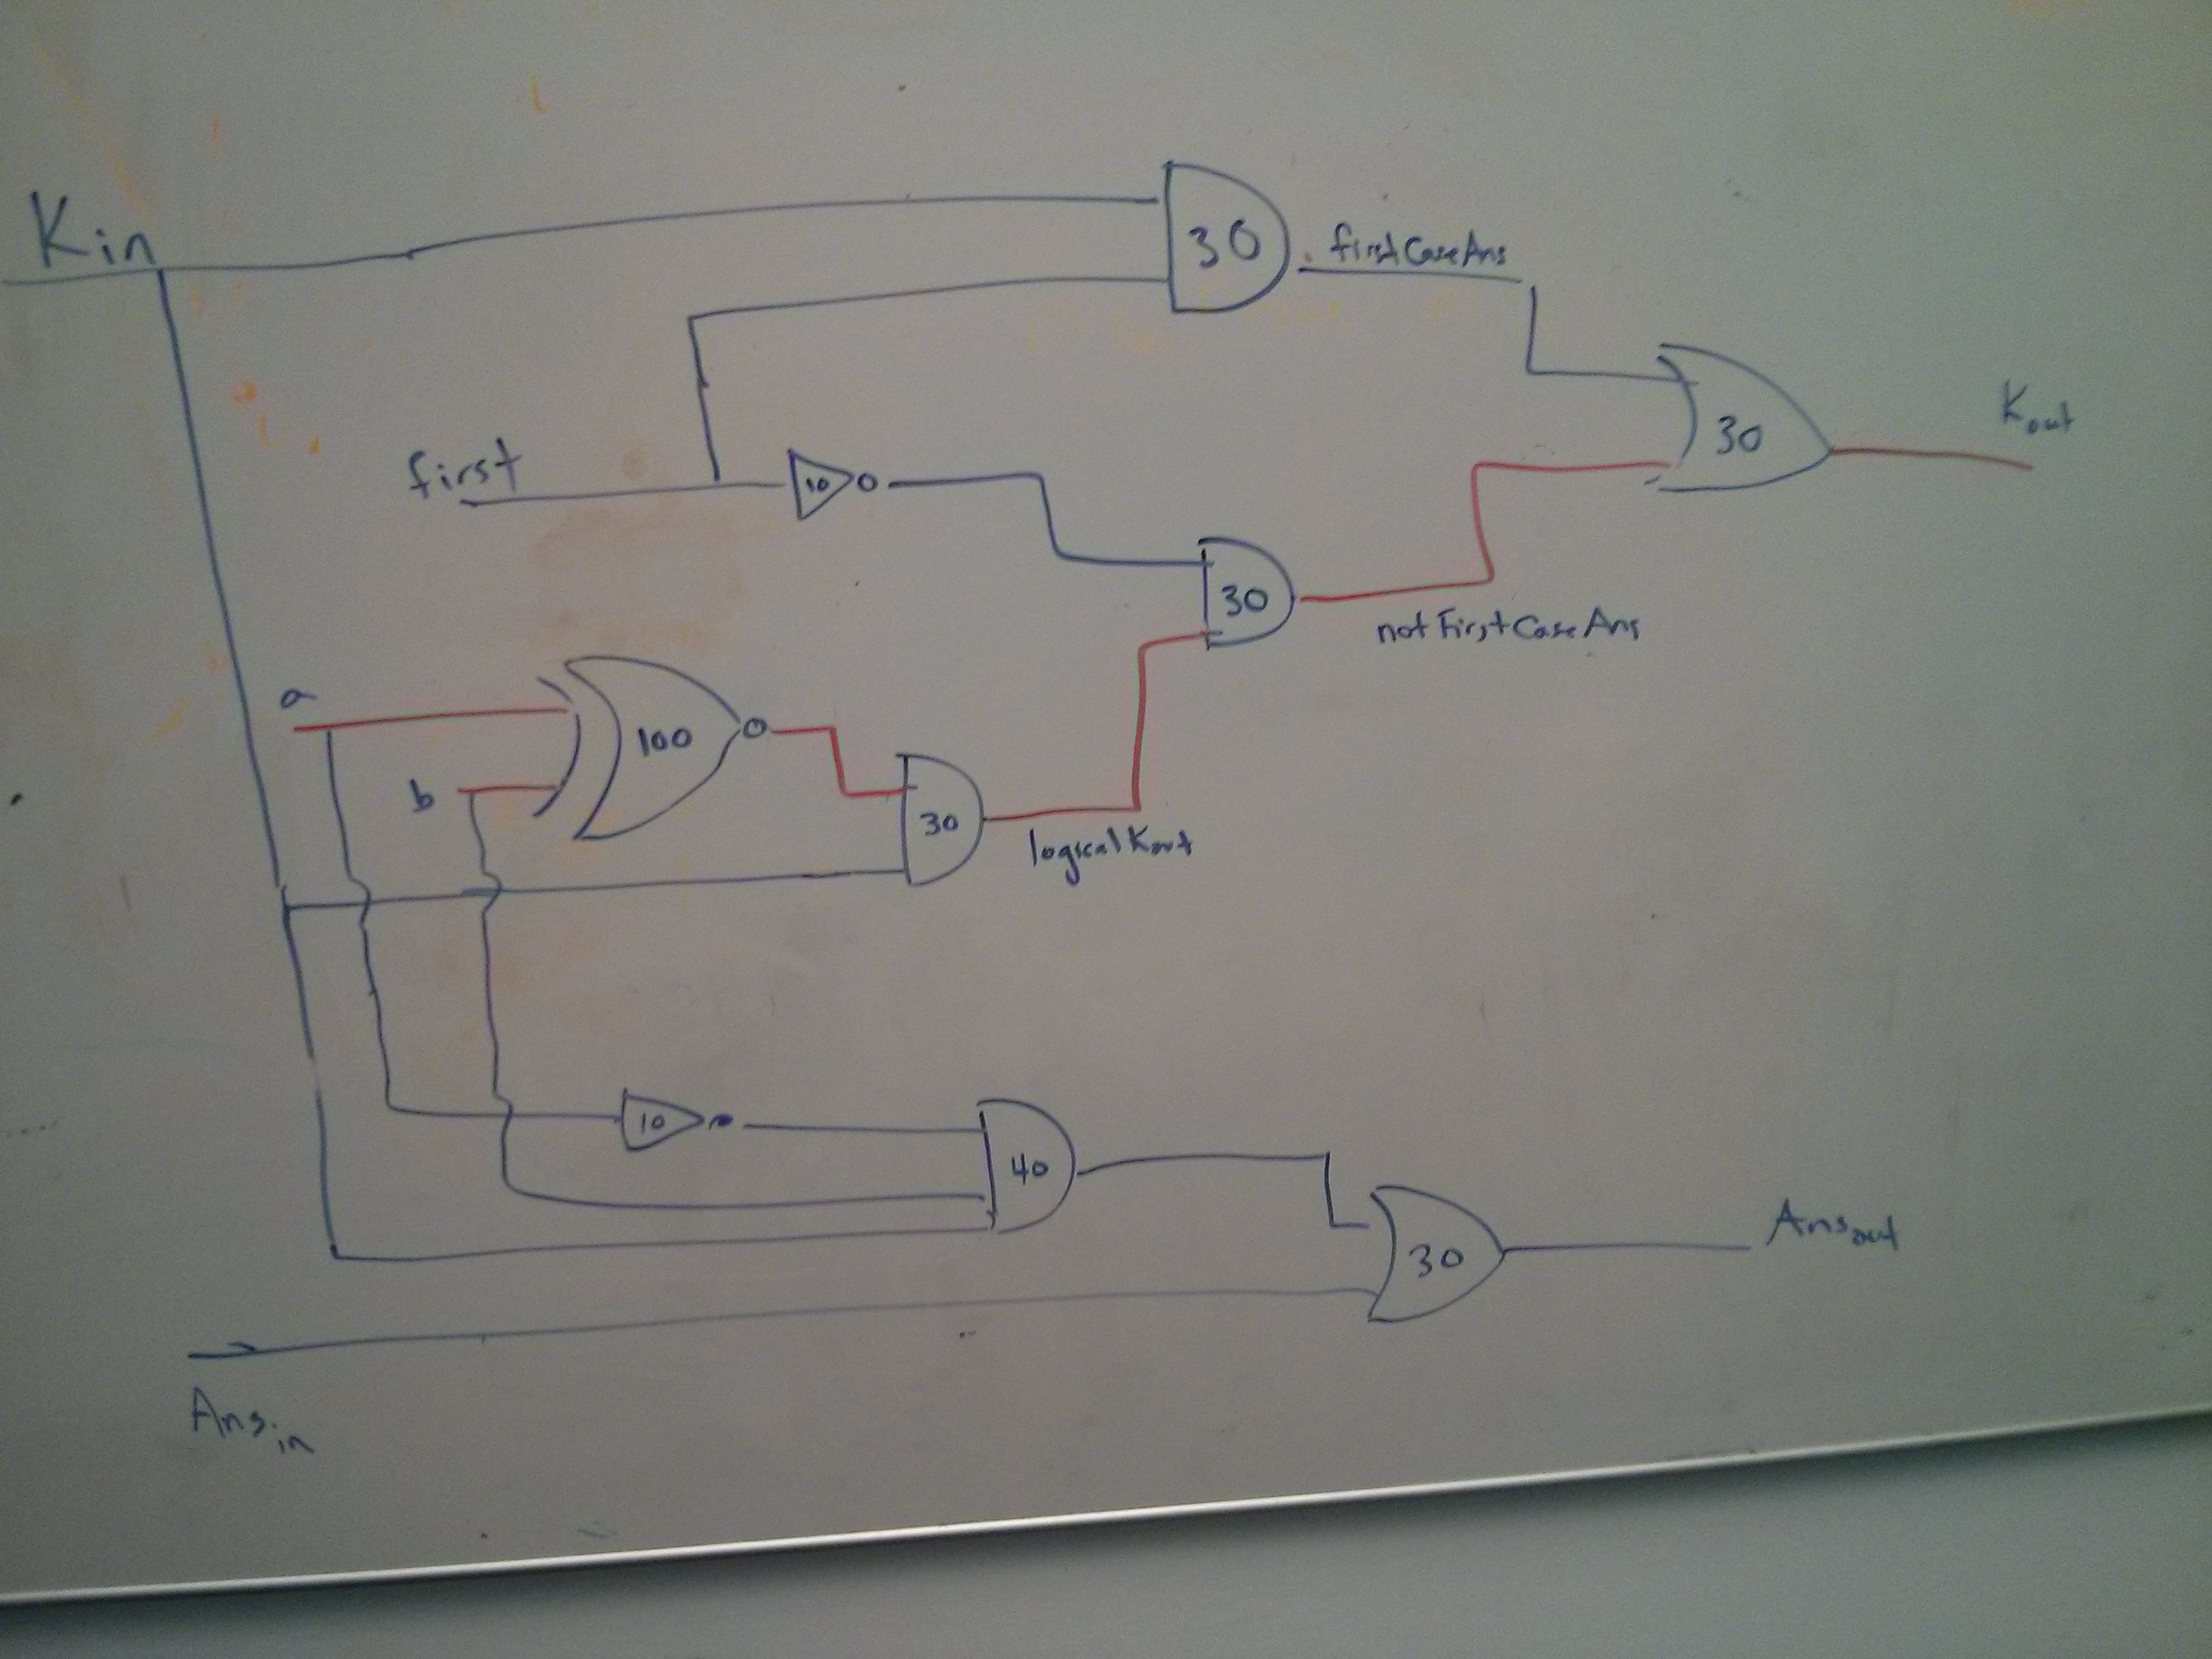 Kin
30
firstCaseAns
30
Kout
first
10
30
notFirstCaseAns
a
100
b
30
logicalKout
10
40
30
Ansout
Ansin